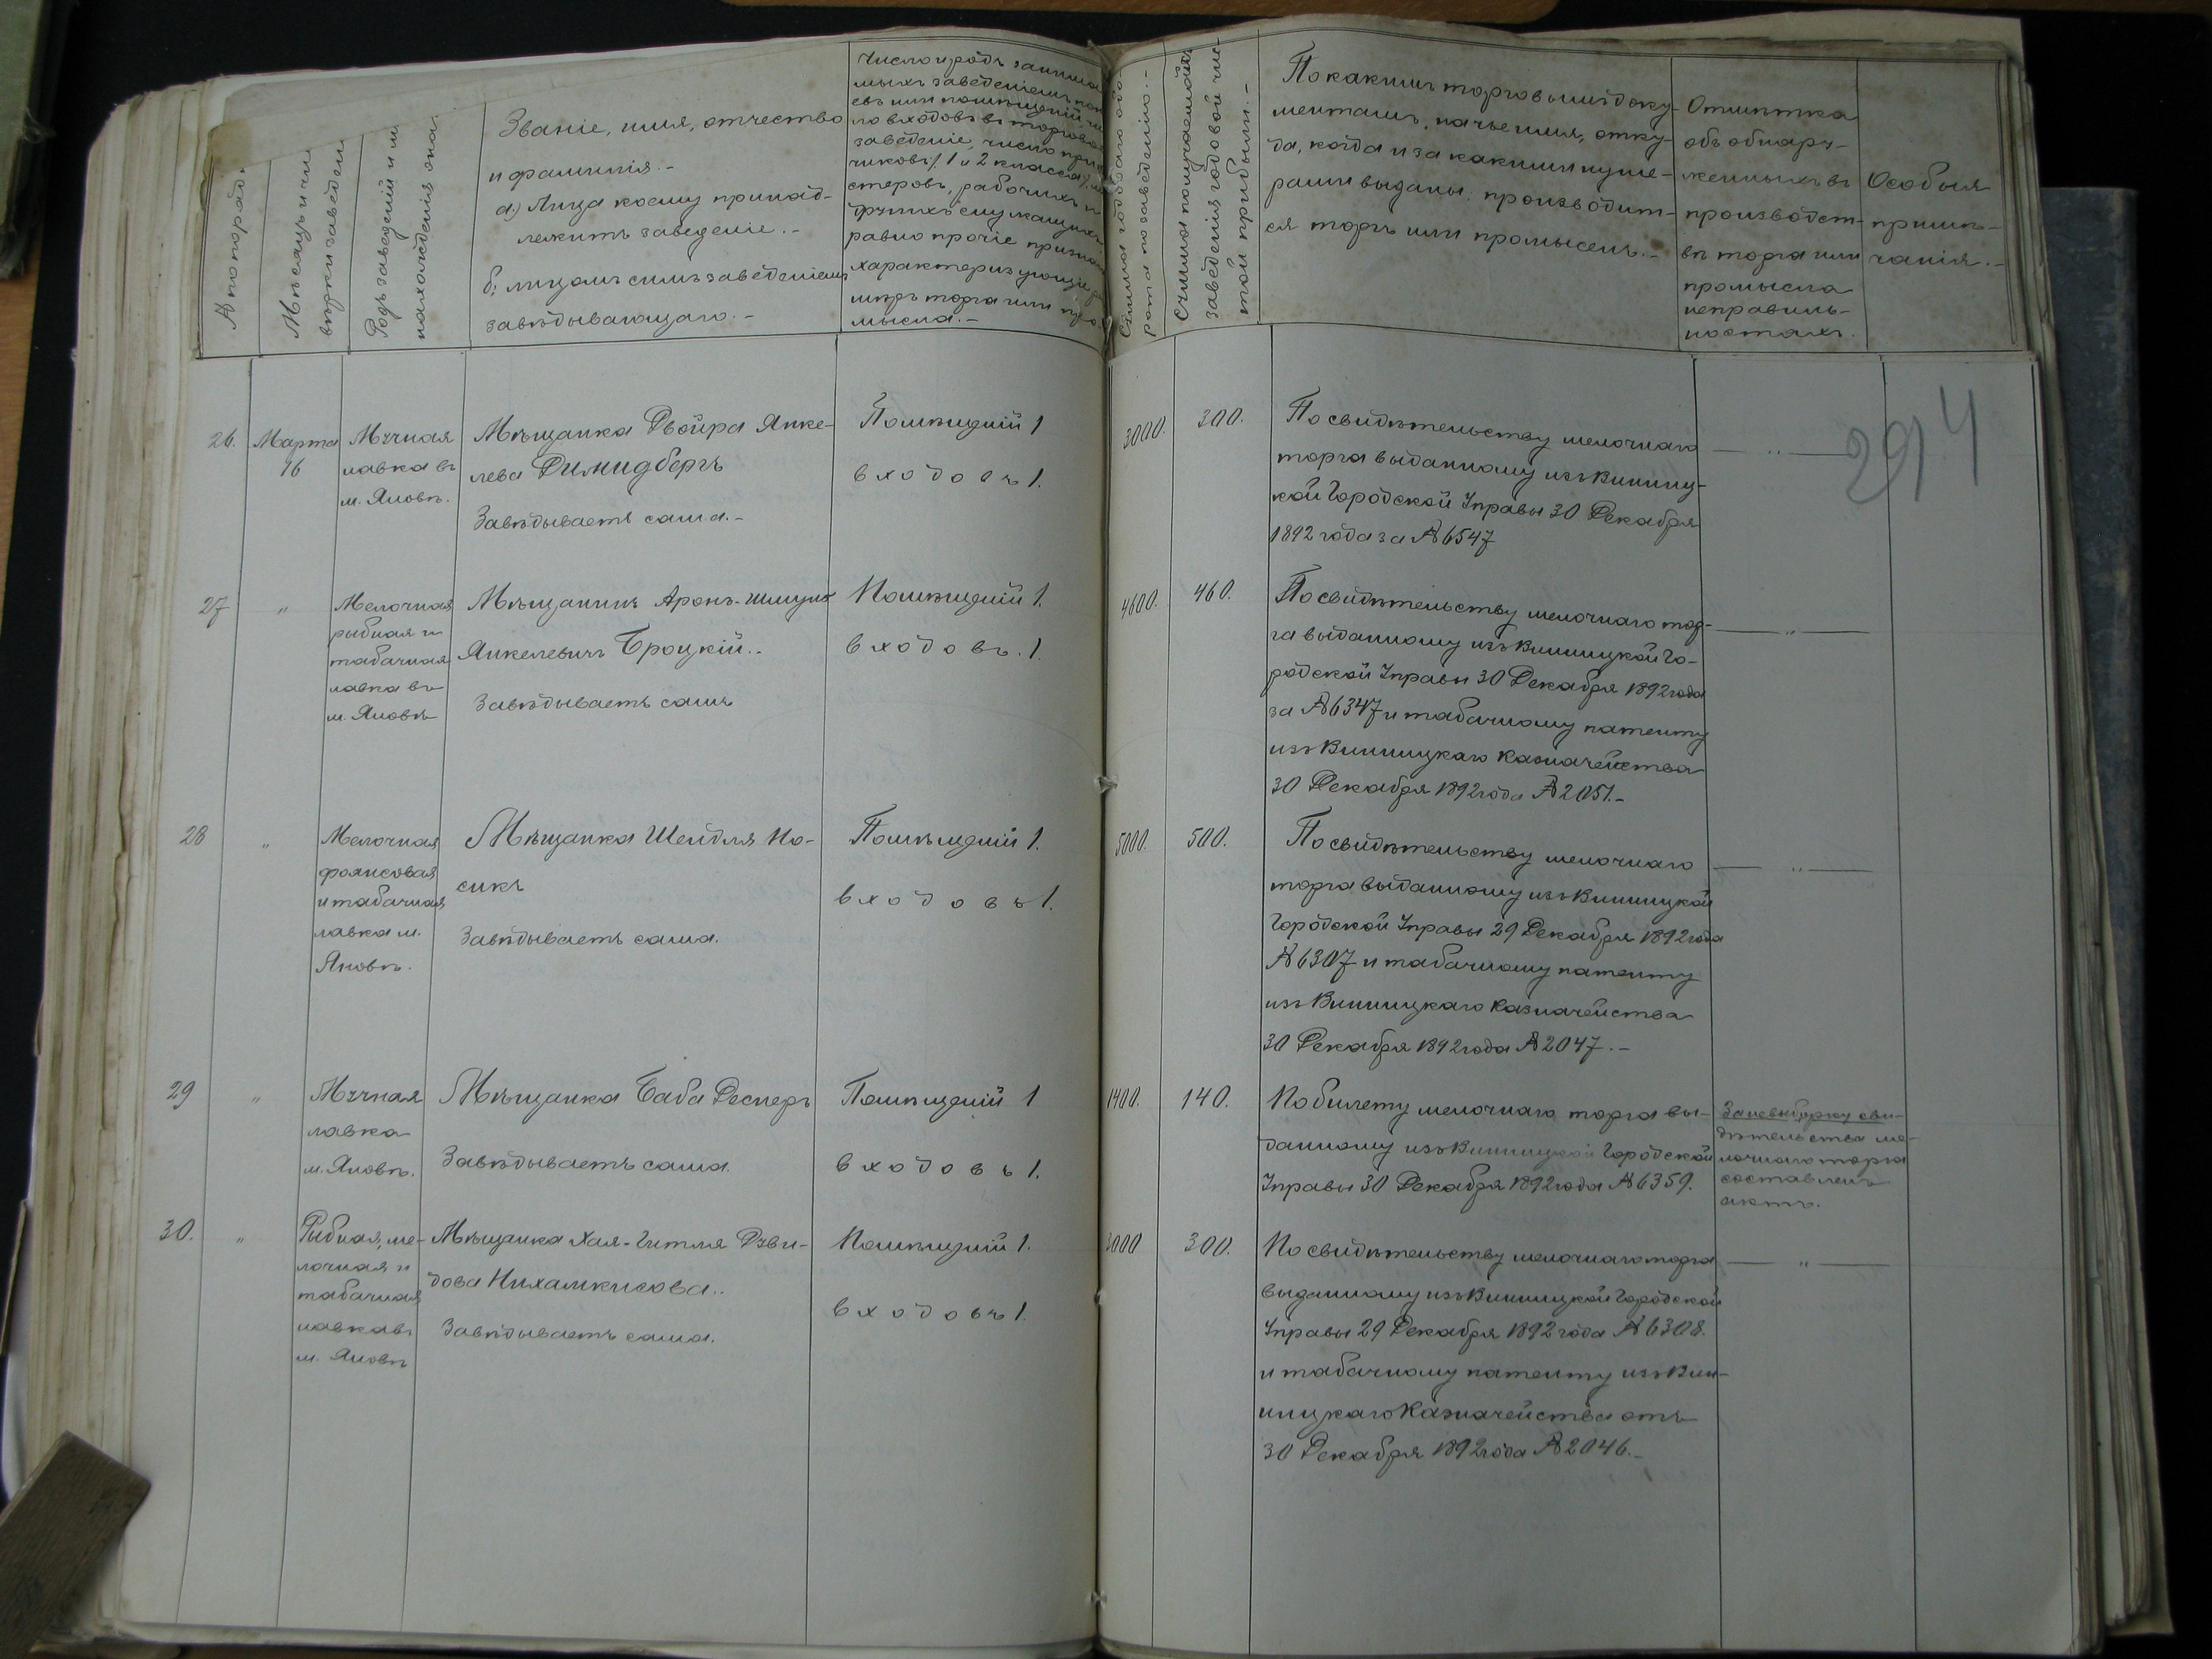 № по поряд.
Мѣсяцъ и чи
вѣрки заведен
Родъ заведенiй и м
нахожденiя она
Званiе, имя, отчество
и фамилiя.-
а) Лица коему принад-
лежитъ заведенiе.-
б) лицомъ симъ заведенiемъ
завѣдывающаго.-
Число и родъ занима
мыхъ заведенiемъ
евъ или помѣщенiй
ло входовъ въ торгов
заведенiе, число при
чиковъ 1 и 2 класса
стеровъ, рабочихъ и
другихъ служащихъ
равно прочiе призна
характеризующiе
мѣръ торга или про
мысла.-
Сумма годоваго обо-
рота по заведенiю.-
Сумма получаемой
заведенiя годовой чис
той прибыли.-
По какимъ торговымъ доку-
ментамъ, на чье имя, отку-
да, когда и за какими нуме-
рами выданы. производит-
ся торгъ или промыселъ.-
Отмѣтка
объ обнару-
женныхъ въ
производст-
вѣ торга или
промысла
неправиль-
ностяхъ.
Особыя
примѣ-
чанiя.-
294
26. Марта
16
Мучная
лавка въ
м. Яновѣ.
Мѣщанка Двойра Янке-
лева Димидбергъ
Завѣдываетъ сама.-
Помѣщенiй 1
входовъ 1.
3000. 300.
По свидѣтельству мелочнаго
торга выданному изъ Винниц-
кой Городской Управы 30 Декабря
1892 года за № 6547
— " —
27 "
Мелочная
рыбная и
табачная
лавка въ
м. Яновѣ
Мѣщанинъ Аронъ-Шмуль
Янкелевичъ Броцкiй..
Завѣдываетъ самъ
Помѣщенiй 1.
входовъ. 1.
4600. 460.
По свидѣтельству мелочнаго тор-
га выданному изъ Винницкой Го-
родской Управы 30 Декабря 1892 года
за № 6347 и табачному патенту
изъ Винницкаго Казначейства
30 Декабря 1892 года № 2051.-
— " —
28 "
Мелочная
фаянсовая
и табачная
лавка м.
Яновѣ.
Мѣщанка Шейдля Но-
сикъ
Завѣдываетъ сама.
Помѣщенiй 1.
входовъ 1.
5000. 500.
По свидѣтельству мелочнаго
торга выданному изъ Винницкой
Городской Управы 29 Декабря 1892 года
№ 6307 и табачному патенту
изъ Винницкаго Казначейства
30 Декабря 1892 года № 2047.-
— " —
29 "
Мучная
лавка
м. Яновѣ.
Мѣщанка Баба Деснеръ
Завѣдываетъ сама.
Помѣщенiй 1
входовъ 1.
1400. 140.
По билету мелочнаго торга вы-
данному изъ Винницкой Городской
Управы 30 Декабря 1892 года № 6359.
За невыборку сви-
дѣтельства ме-
лочнаго торга
составленъ
актъ.
30. "
Рыбная, ме-
лочная и
табачная
лавка въ
м. Яновѣ
Мѣщанка Хая-Гитля Дуви-
дова Нихамкисова..
Завѣдываетъ сама.
Помѣщенiй 1.
входовъ 1.
3000 300.
По свидѣтельству мелочнаго торга
выданному изъ Винницкой Городской
Управы 29 Декабря 1892 года № 6308.
и табачному патенту изъ Вин-
ницкаго Казначейства отъ
30 Декабря 1892 года № 2046.-
— " —